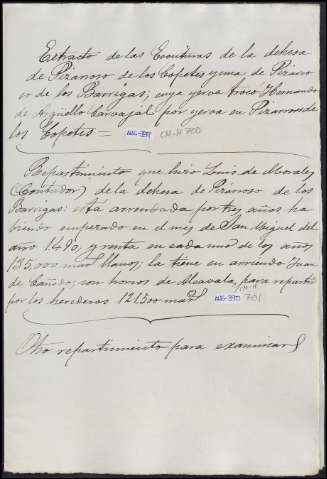 Extracto de las Escrituras de la dehesa
de Pizarroso de los Copetes y una de Pizarro
so de los Barrigas; cuya yerva trocó Hernando
de Argüello Carvajál por yerva en Pizarroso de
los Copetes =
CM-H 700
Repartimiento que hizo Luis de Morales
(Contador) de la dehesa de Pizarroso de los
Barrigas: está arrendada por tres años, ha
biendo empezado en el mes de San Miguel del
año 1490, y renta en cada uno de los años
135,000 mars llanos; la tiene en arriendo Juan
de con horros de Alcavala, para repartir
por los herederos 121500 mars
CM-H 701
Otro repartimiento para examinar